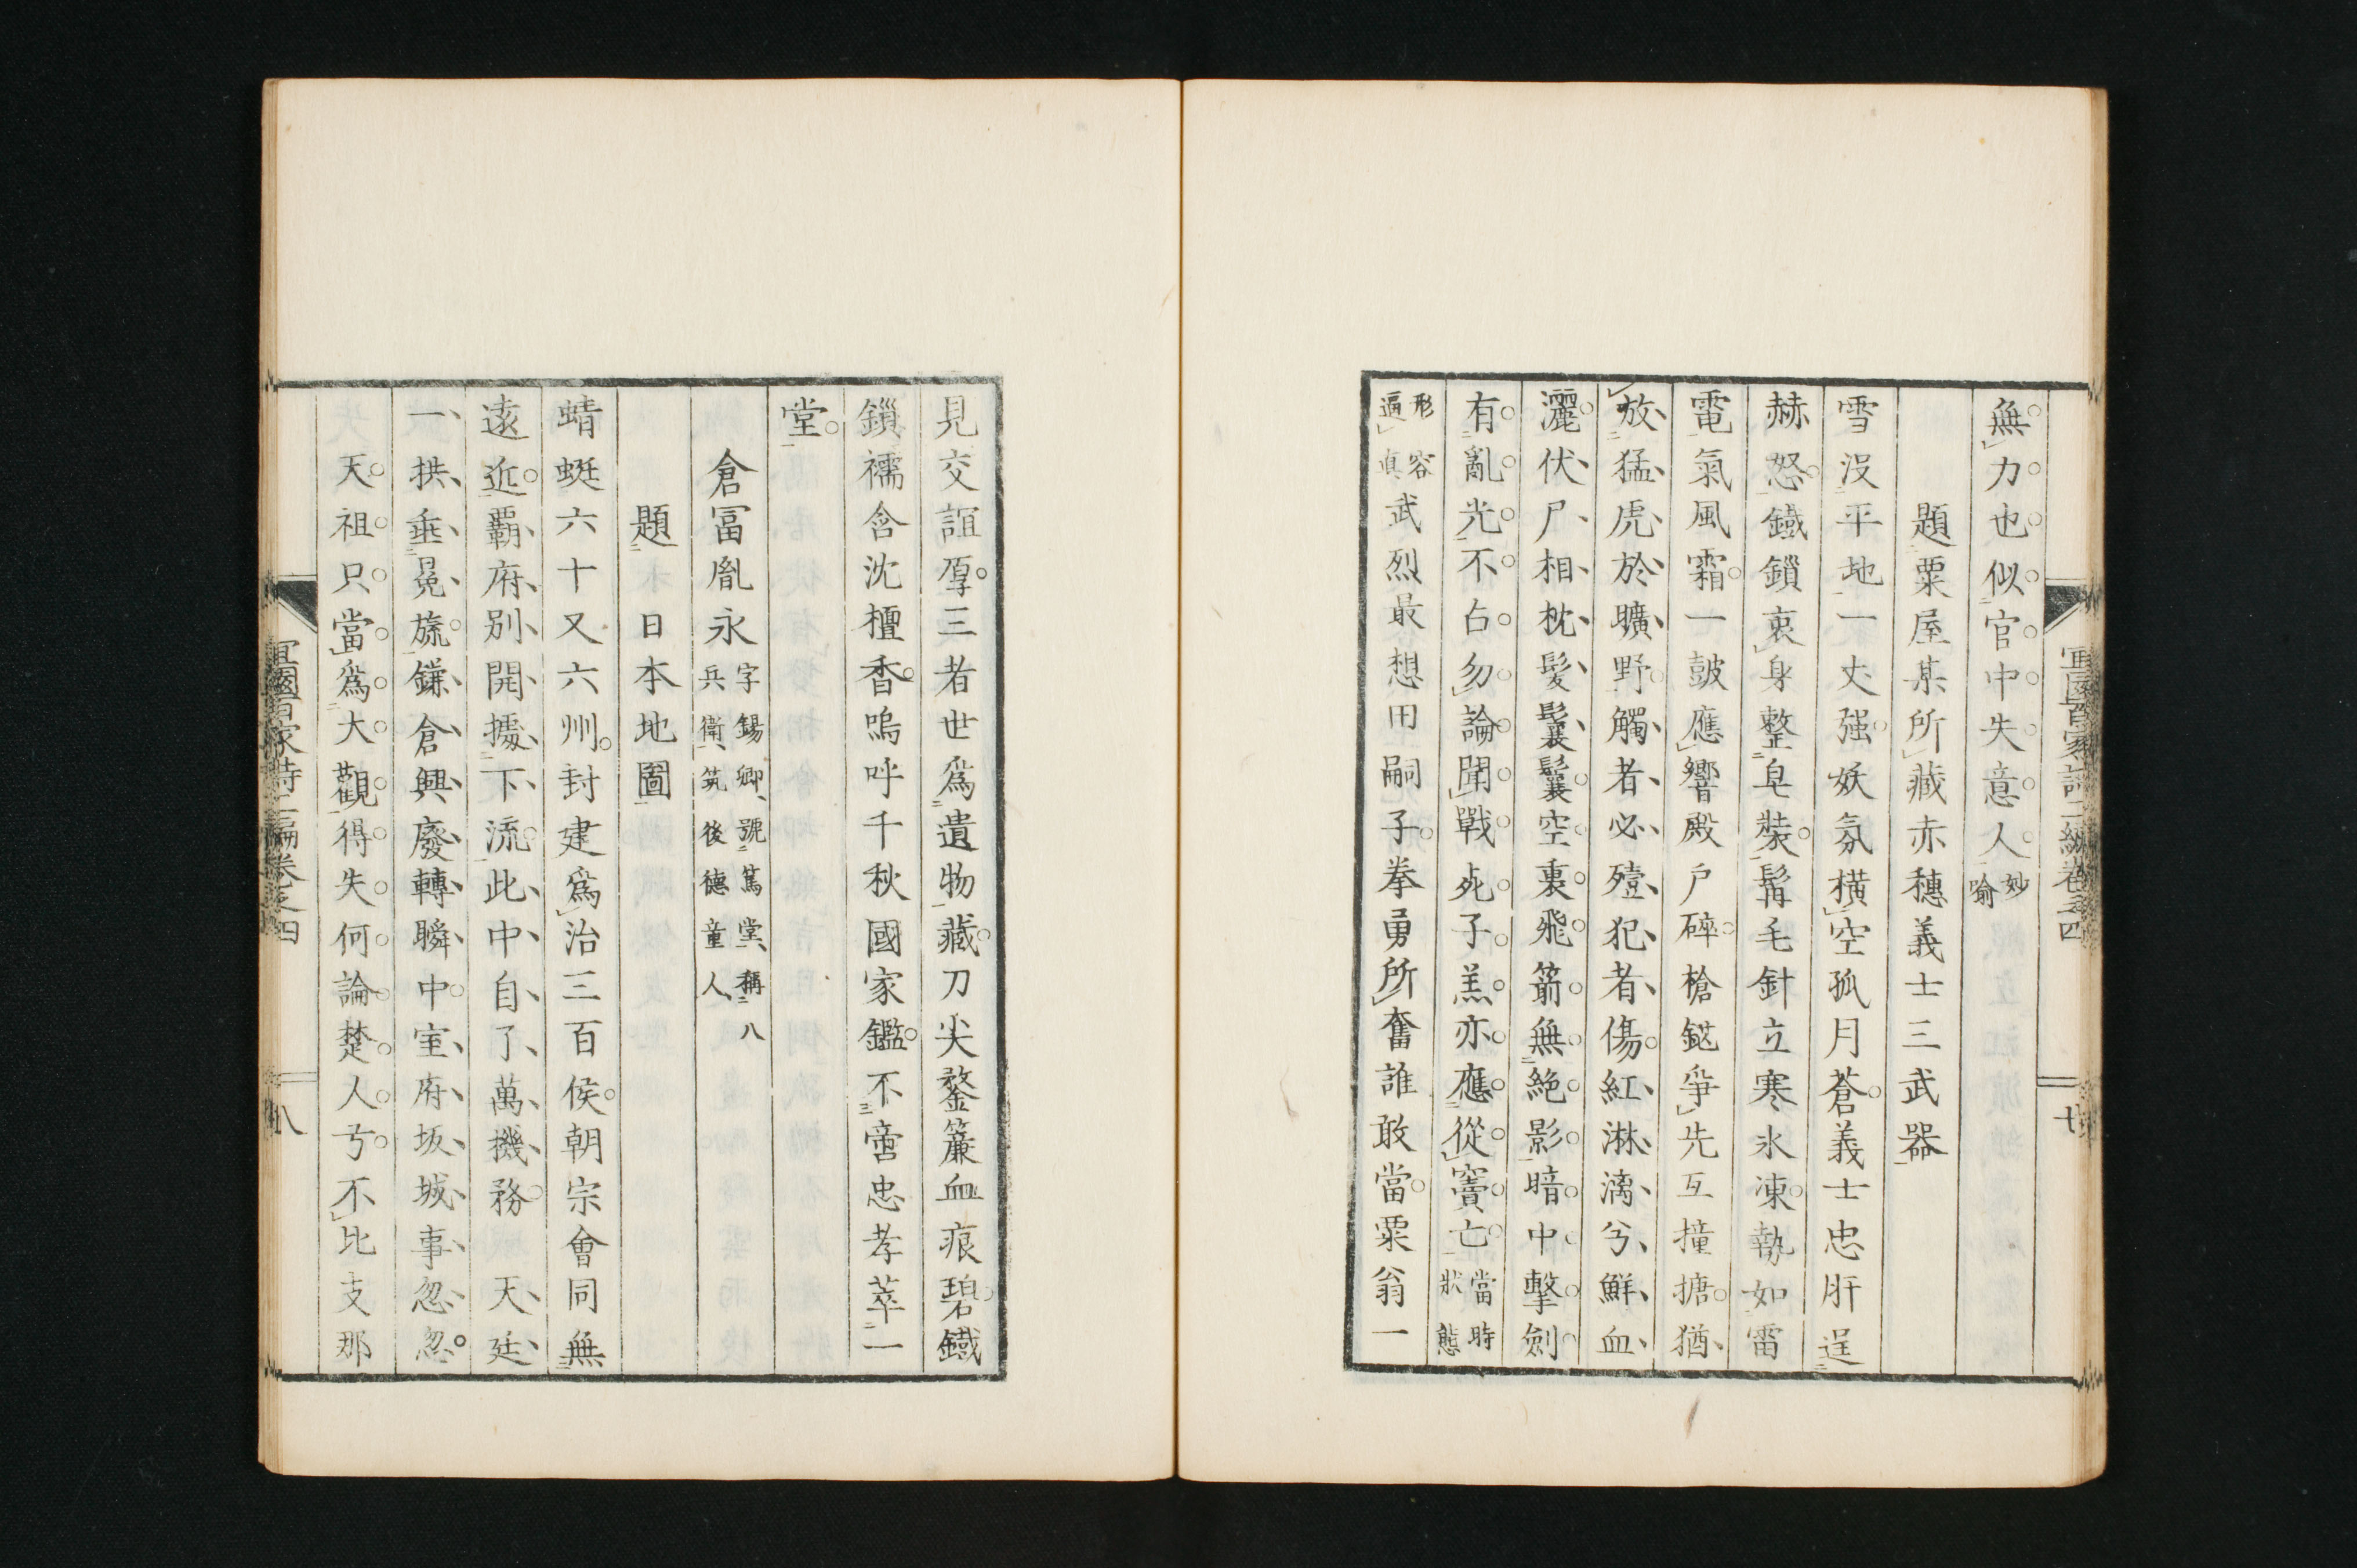 宜園百家詩二編卷之四
七
無力也似官中失意人妙喻
題粟屋某所藏赤穗義士三武器
雪沒平地一丈强妖氛橫空孤月蒼義士忠肝逞
赫怒鐵鎖裹身整皂裝髯毛針立寒氷凍勢如雷
電氣風霜一皷應響殿戶碎槍鎚爭先互撞搪猶
放猛虎於曠野觸者必殪犯者傷紅淋漓兮鮮血
灑伏尸相枕髮鬤鬤空裏飛箭無絕影暗中擊劍
有亂光不占勿論聞戰死子羔亦應從竇亡當時狀態
形容逼眞武烈最想田嗣子拳勇所奮誰敢當粟翁一
見交誼厚三者世爲遺物藏刀尖鍪簾血痕碧鐵
鎖襦含沈檀香嗚呼千秋國家鑑不啻忠孝萃一
堂
倉富胤永字錫卿、號篤堂、稱八兵衛、筑後德童人、
題日本地圖
蜻蜓六十又六州封建爲治三百侯朝宗會同無
遠近覇府別開據下流此中自了萬機務天廷
一拱垂冕旒鎌倉興廢轉瞬中室府坂城事忽忽
天祖只當爲大觀得失何論楚人弓不比支那
宜園百家詩二編卷之四
八